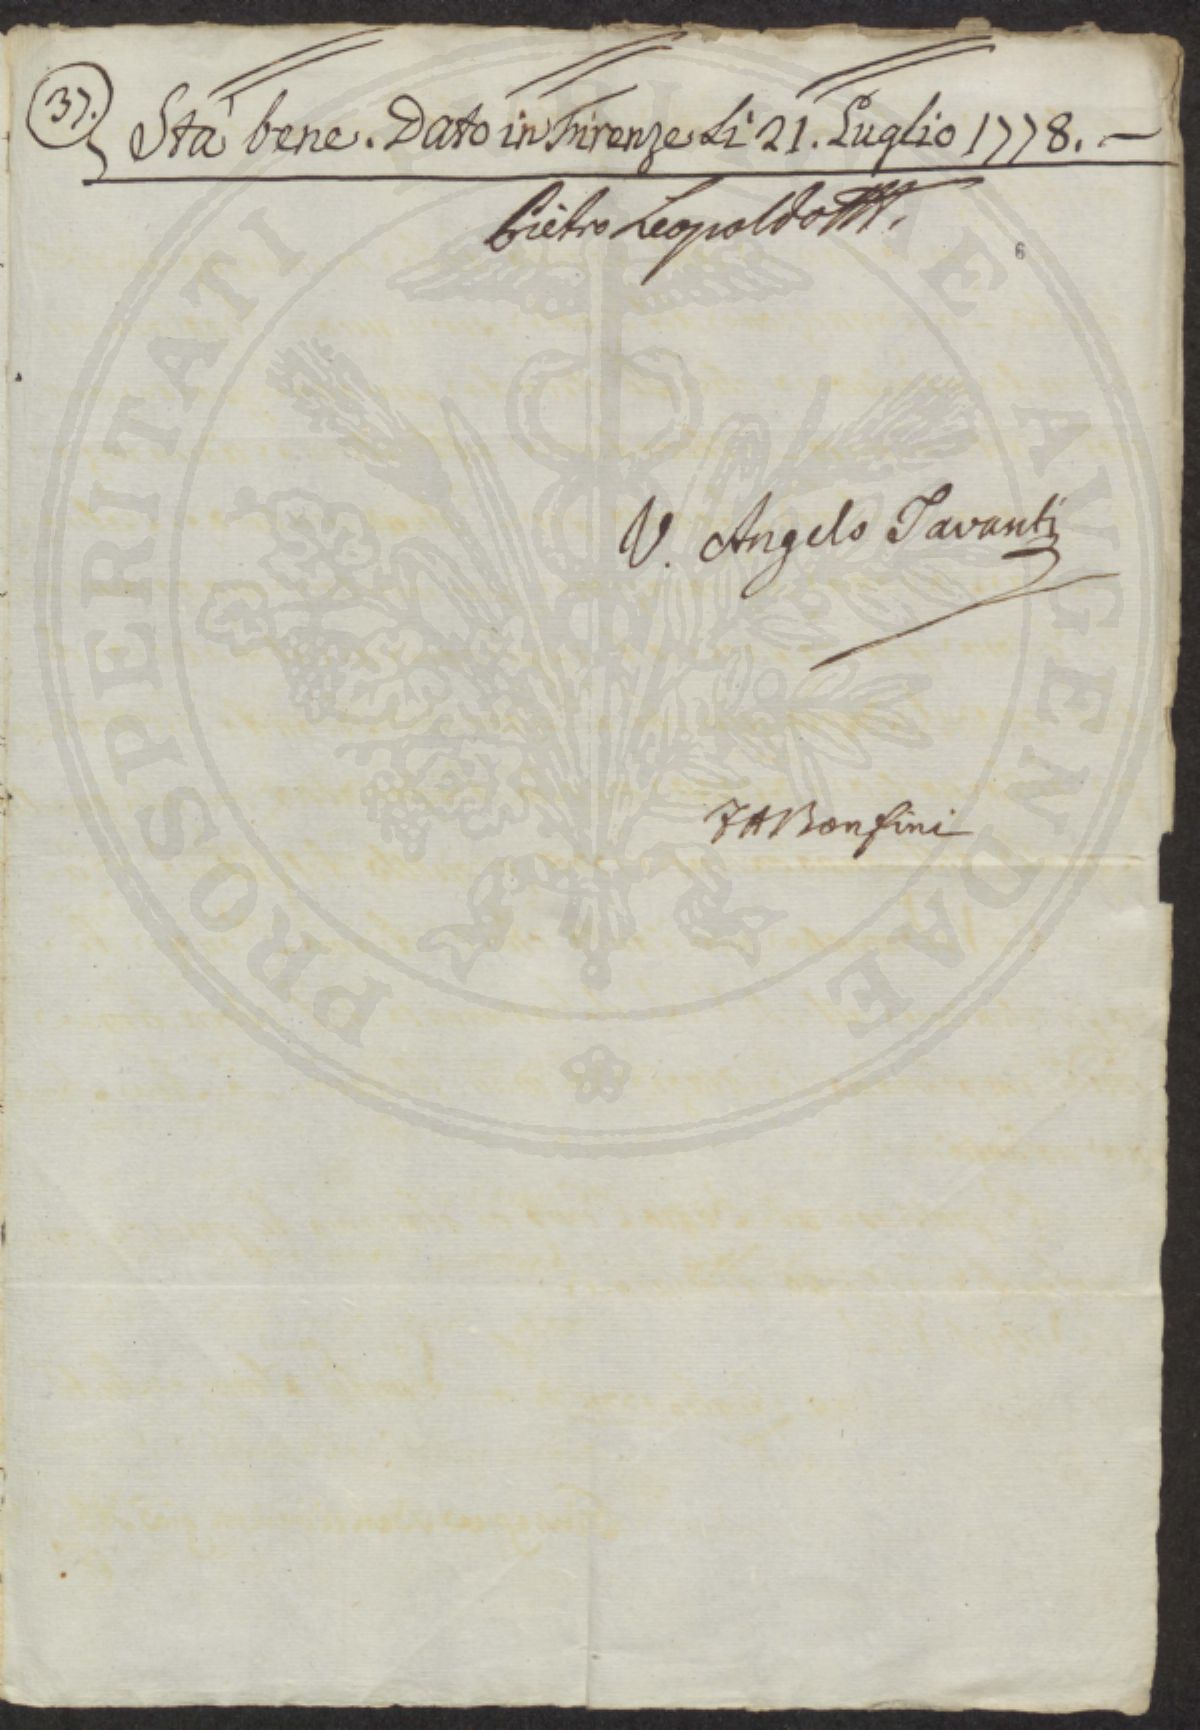 37.
Stà bene. Dato in Firenze Li 21. Luglio 1778. —
Pietro Leopoldo
6
V. Angelo Tavanti
F A Bonfini
PROSPERITATI PUBLICAE AUGENDAE